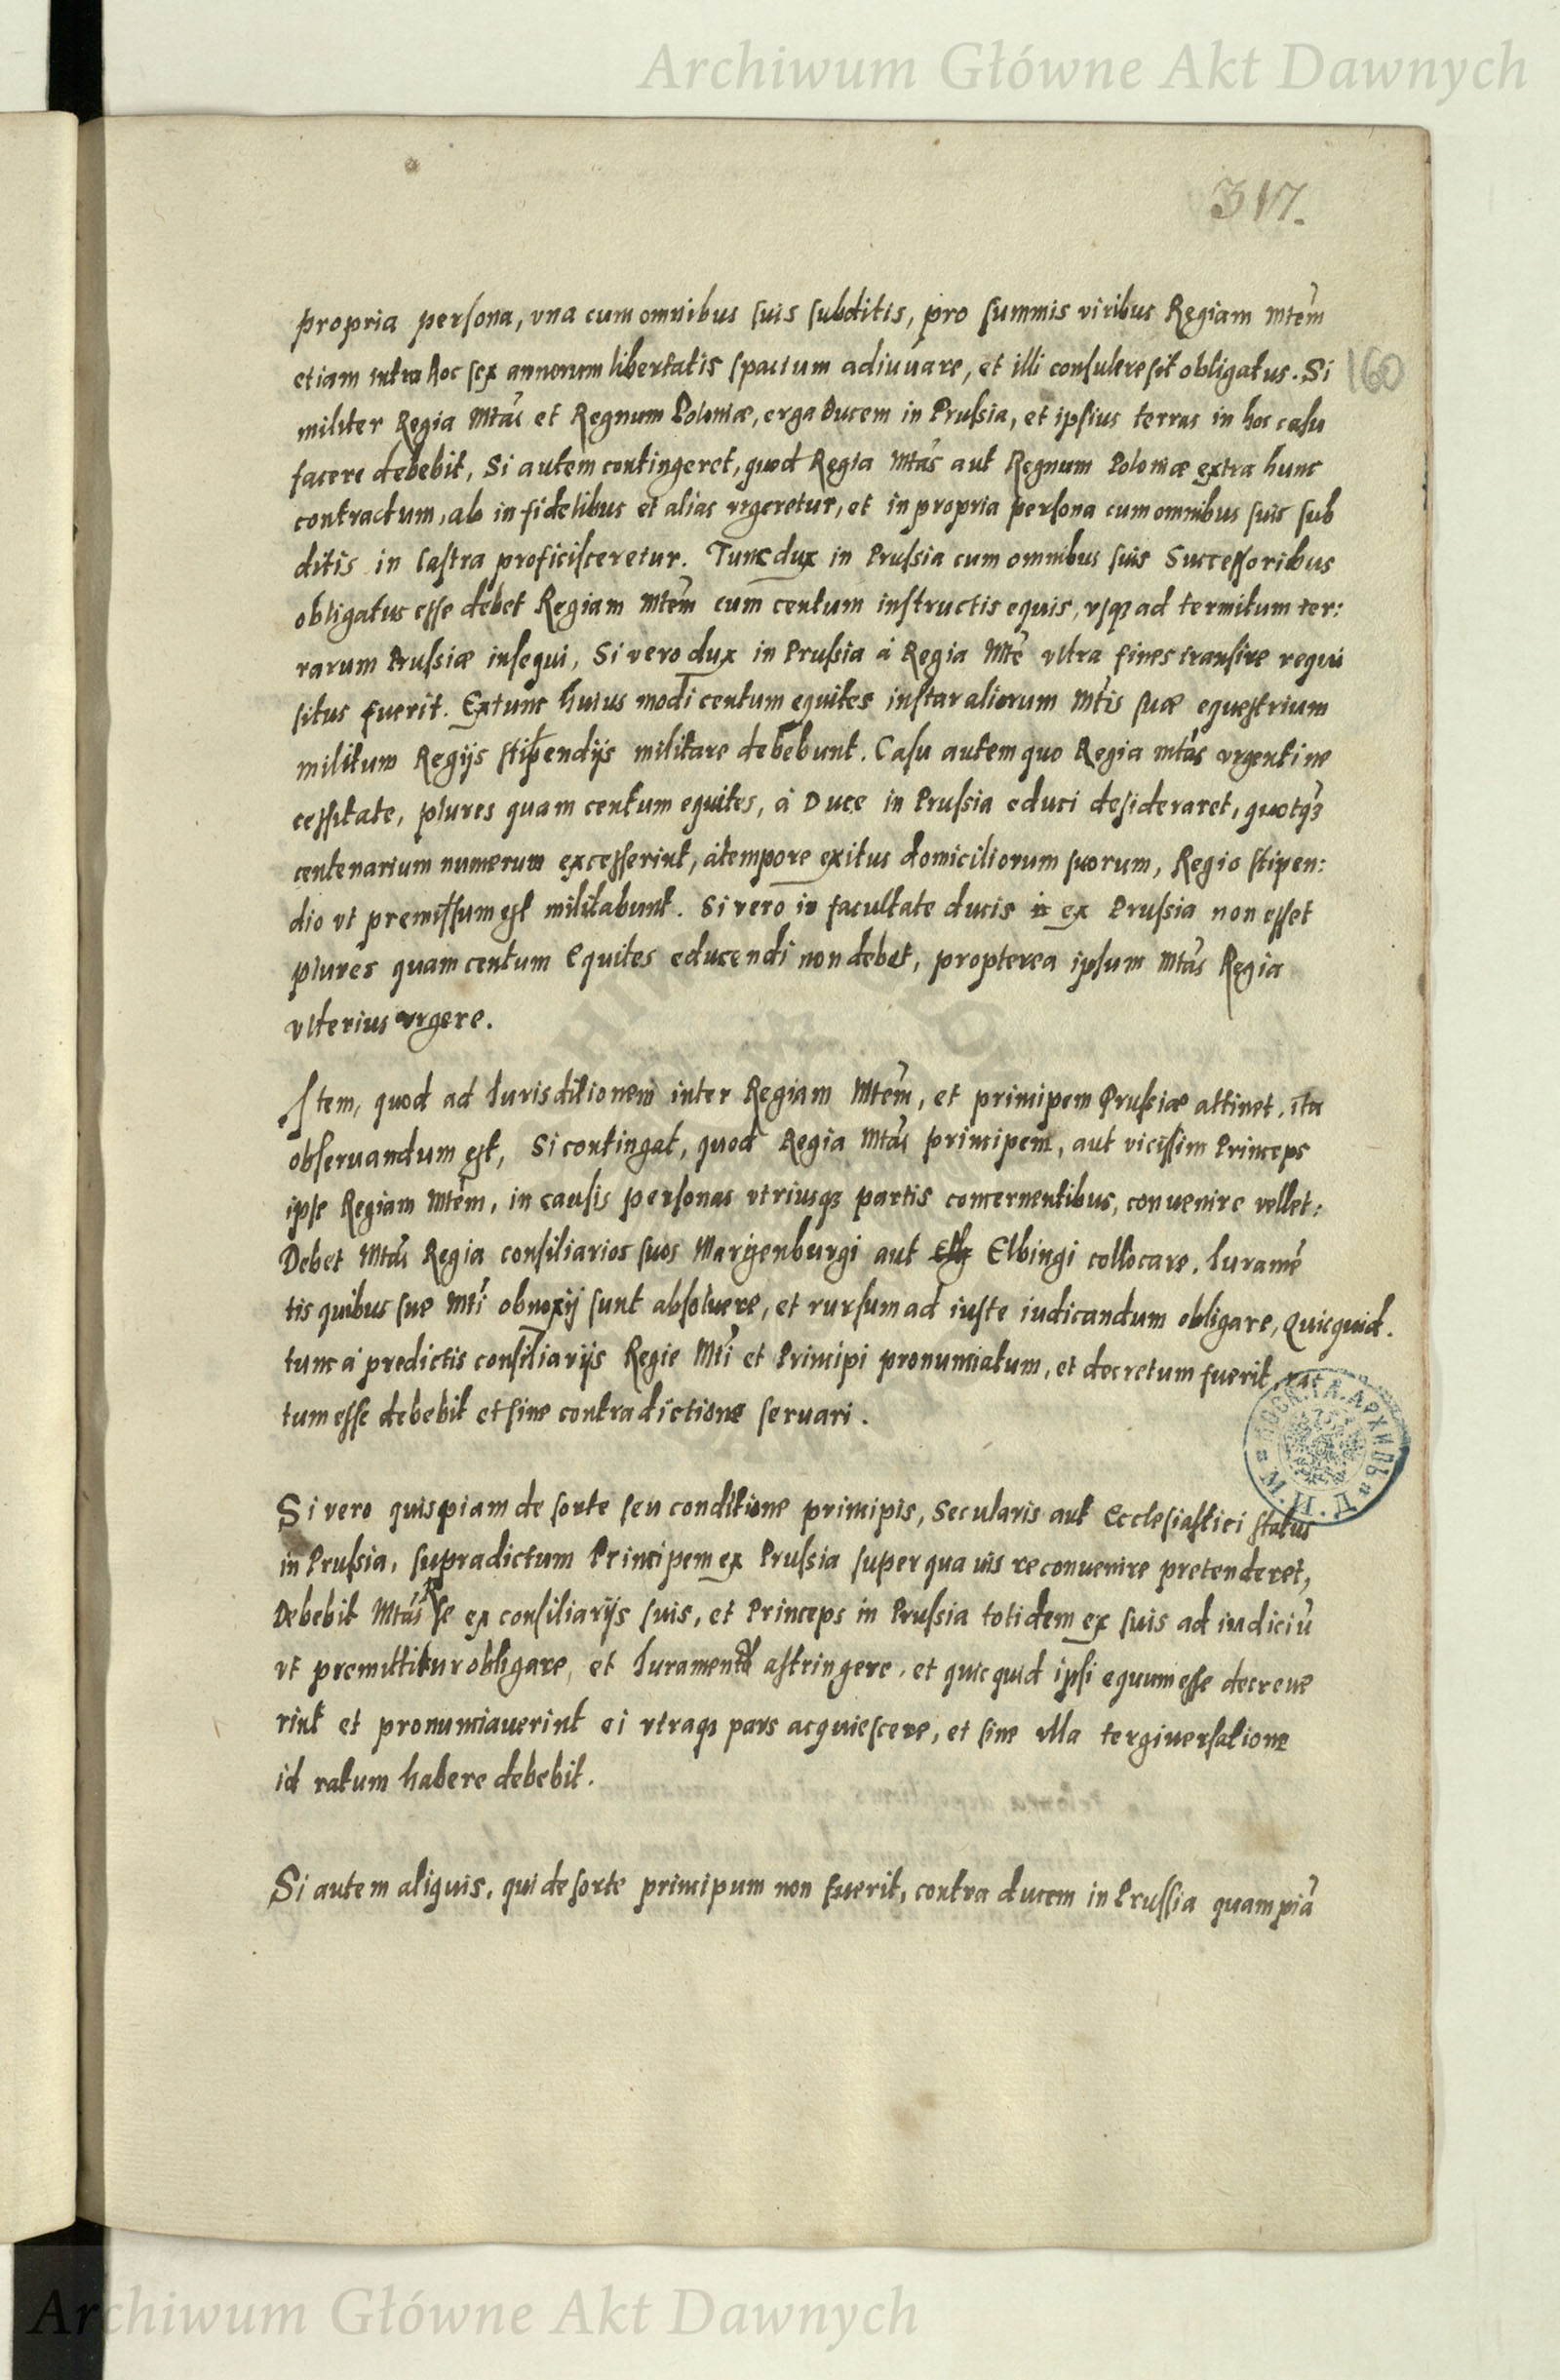 Archiwum Główne Akt Dawnych
317.
propria persona, vna cum omnibus suis subditis, pro summis viribus Regiam Mtem
etiam intra hoc sex annorum libertatis spacium adiuuare, et illi consulere sit obligatus. Si
160
militer Regia Mtas et Regnum Poloniæ, erga Ducem in Prussia, et ipsius terras in hoc casu
facere debebit, Si autem contingeret, quod Regia Mtas aut Regnum Poloniæ extra hunc
contractum, ab infidelibus et alias vrgeretur, et in propria persona cum omnibus suis sub
ditis in Castra proficisceretur. Tunc dux in Prussia cum omnibus suis Successoribus
obligatus esse debet Regiam Mtem cum centum instructis equis, vsq3 ad termitum ter:
rarum Prussiæ insequi, Si vero dux in Prussia à Regia Mte vltra fines transire requi
situs fuerit. Extunc huius modi centum equites instar aliorum Mtis suæ equestrium
militum Regijs stipendijs militare debebunt. Casu autem quo Regia Mtas vrgenti ne
cessitate, plures quam centum equites, à Duce in Prussia educi desideraret, quotq3
centenarium numerum excesserint, à tempore exitus domiciliorum suorum, Regio stipen:
dio vt premissum est militabunt. Si vero in facultate ducis in ex Prussia non esset
plures quam centum Equites educendi non debet, propterea ipsum Mtas Regia
vlterius vrgere.
Item, quod ad Iurisditionem inter Regiam Mtem, et principem Prussiæ attinet, ita
obseruandum est, Si contingat, quod Regia Mtas principem, aut vicissim Princeps
ipse Regiam Mtem, in causis personas vtriusq3 partis concernentibus, conuenire vellet:
Debet Mtas Regia consiliarios suos Margenburgi aut Elbg Elbingi collocare, Iuramē
tis quibus sue Mti obnoxij sunt absoluere, et rursum ad iuste iudicandum obligare, Quicquid.
tunc à predictis consiliarijs Regie Mti et Principi pronunciatum, et decretum fuerit, ra
tum esse debebit et sine contradictione seruari.
Si vero quispiam de sorte seu conditione principis, Secularis aut Ecclesiastici status
in Prussia, supradictum Principem ex Prussia super qua uis re conuenire pretenderet,
Debebit Mtas Rse ex consiliarijs suis, et Princeps in Prussia totidem ex suis ad iudiciū
vt premittitur obligare, et Iuramento astringere, et quicquid ipsi equum esse decreue
rint et pronunciauerint ei vtraq3 pars acquiescere, et sine vlla tergiuersatione
id ratum habere debebit.
Si autem aliquis, qui de sorte principum non fuerit, contra ducem in Prussia quampiā
Archiwum Główne Akt Dawnych